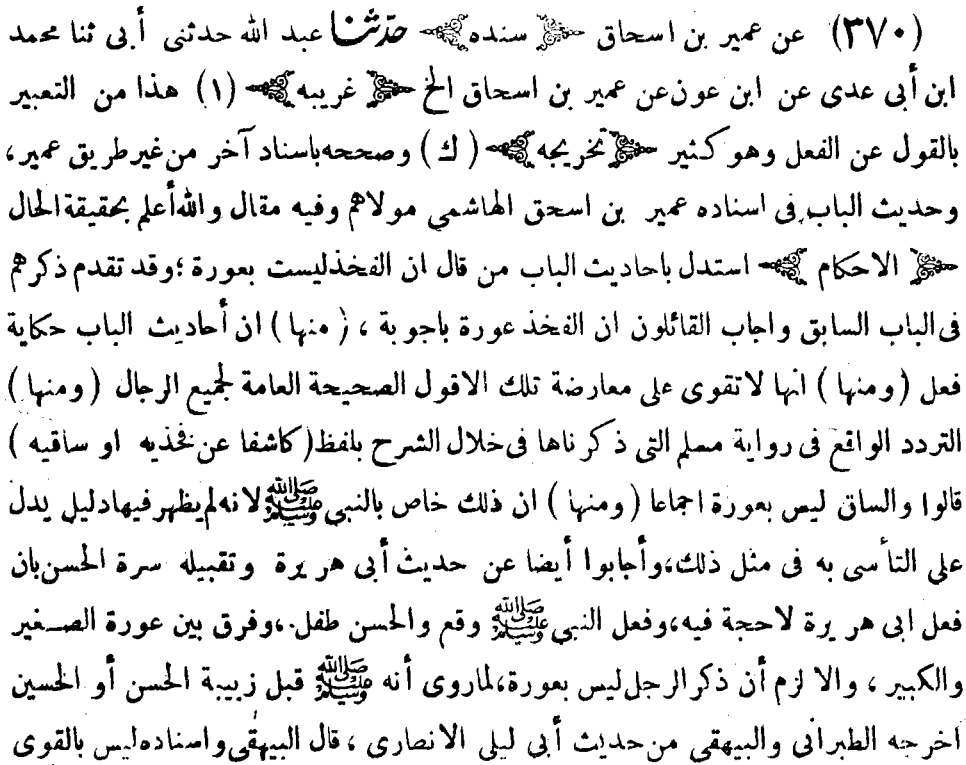 (٣٧٠) عن عمير بن اسحاق ﴿ سنده ﴾ حدّثنا عبد الله حدثنى أبى ثنا محمد
ابن أبى عدى عن ابن عون عن عمير بن اسحاق الخ ﴿ غريبه ﴾ (١) هذا من التعبير
بالقول عن الفعل وهو كثير ﴿ تخريجه ﴾ ( ك ) وصححه باسناد آخر من غير طريق عمير،
وحديث الباب فى اسناده عمير بن اسحق الهاشمي مولاهم وفيه مقال والله أعلم بحقيقة الحال
﴿ الاحكام ﴾ استدل باحاديث الباب من قال ان الفخذ ليست بعورة ؛ وقد تقدم ذكرهم
فى الباب السابق واجاب القائلون ان الفخذ عورة باجوبة ، ( منها ) ان أحاديث الباب حكاية
فعل ( ومنها ) انها لا تقوى على معارضة تلك الاقول الصحيحة العامة لجميع الرجال ( ومنها )
التردد الواقع فى رواية مسلم التى ذكرناها فى خلال الشرح بلفظ ( كاشفا عن فخذيه او ساقيه )
قالوا والساق ليس بعورة اجماعا ( ومنها ) ان ذلك خاص بالنبي ﷺ لانه لم يظهر فيها دليل يدل
على التأسى به فى مثل ذلك، وأجابوا أيضا عن حديث أبى هريرة وتقبيله سرة الحسن بان
فعل ابى هريرة لاحجة فيه، وفعل النبى ﷺ وقع والحسن طفل، وفرق بين عورة الصغير
والكبير ، والا لزم أن ذكر الرجل ليس بعورة، لماروى أنه ﷺ قبل زبيبة الحسن أو الحسين
اخرجه الطبرانى والبيهقى من حديث أبى ليلى الانصارى ، قال البيهقى واسناده ليس بالقوى